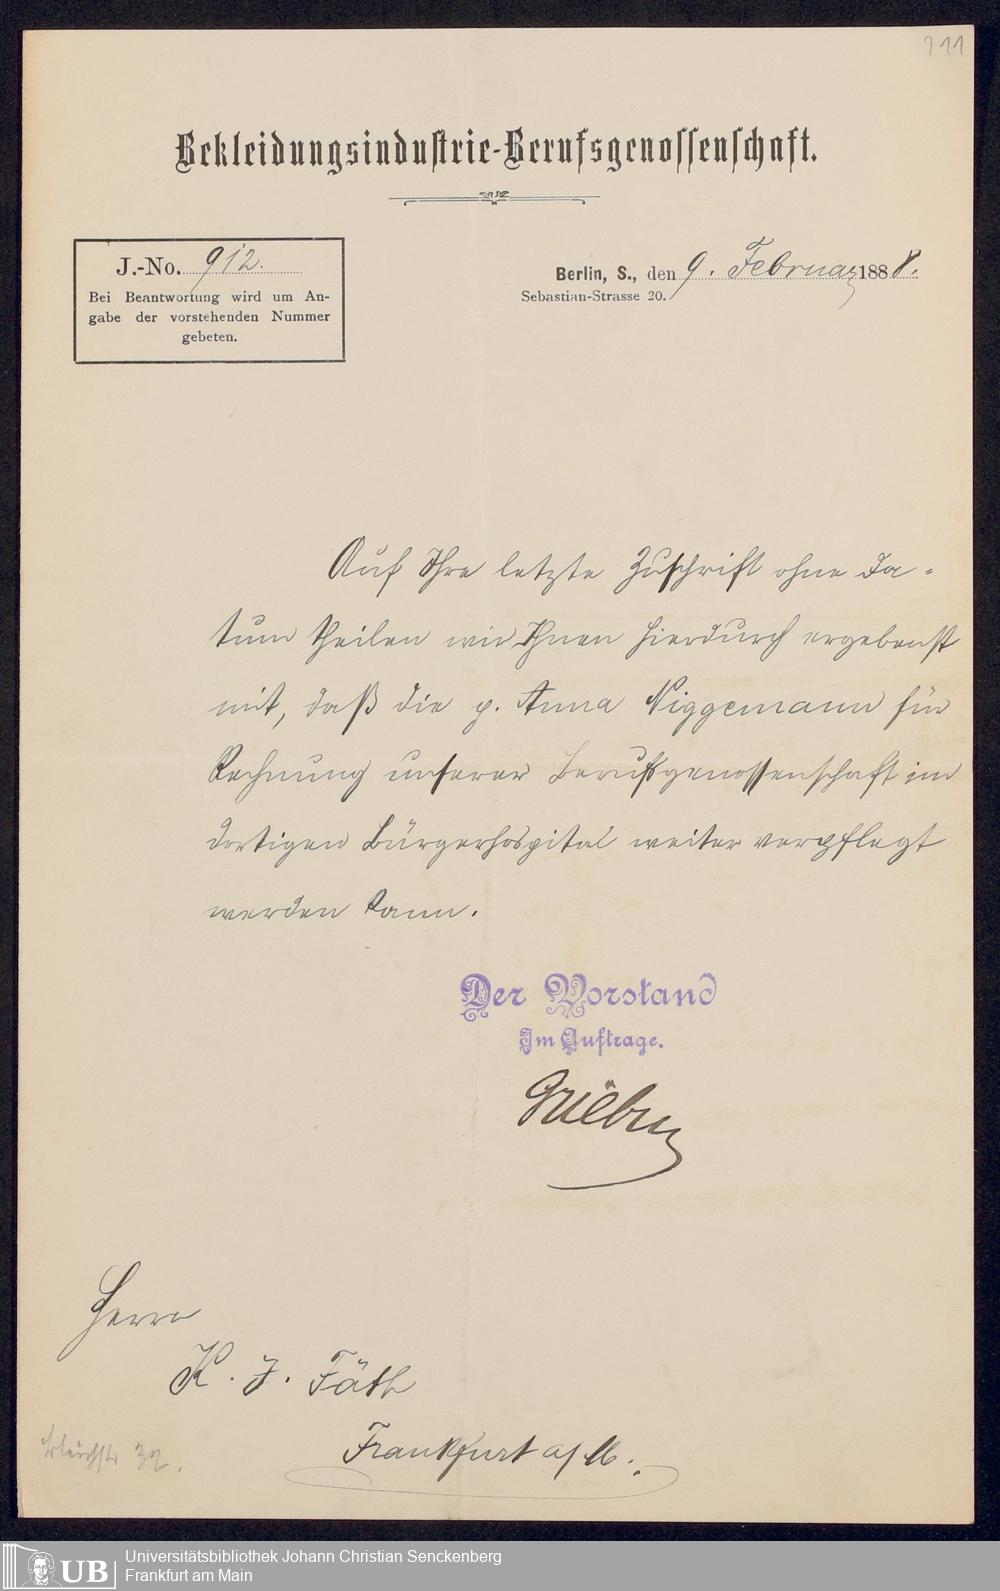 211
Bekleidungsindustrie-Berufsgenossenschaft.
J.-No. 912.
Bei Beantwortung wird um An-
gabe der vorstehenden Nummer
gebeten.
Berlin, S., den 9. Februar 1888.
Sebastian-Strasse 20.
Auf Ihre letzte Zuschrift ohne Da-
tum theilen wir Ihnen hierdurch ergebenst
mit, daß die p. Anna Niggemann für
Rechnung unserer Berufsgenossenschaft im
dortigen Bürgerhospital weiter verpflegt
werden kann.
Der Vorstand
Im Auftrage.
Herrn
K. J. Fäth
Frankfurt a/M.
UB
Universitätsbibliothek Johann Christian Senckenberg
Frankfurt am Main